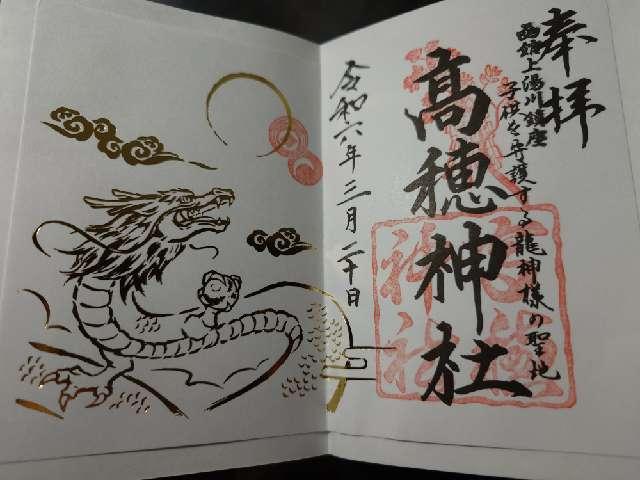 奉拝
西館上湯川鎮座
子供を守護する龍神様の聖地
高穂神社
令和六年三月二十日